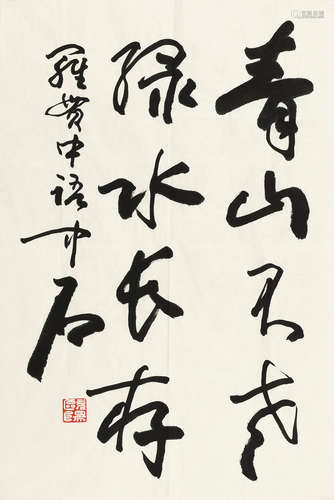 青山不老
绿水长存
羅贯中语 中石